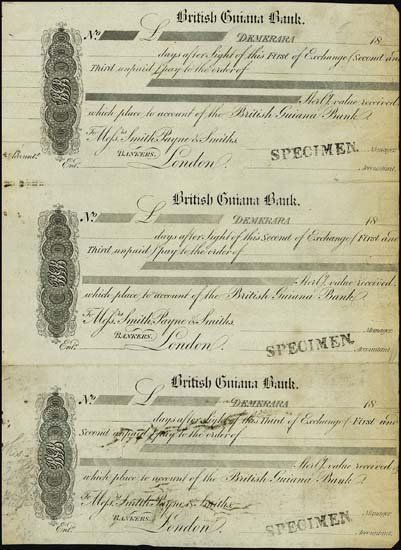 British Guiana Bank.
No L DEMERARA 18
days after Sight of this First of Exchange (Second and
Third unpaid) pay to the order of
Sterl'g value received
which place to account of the British Guiana Bank
To Mess.rs Smith Payne & Smiths
BANKERS. London.
SPECIMEN.
Manager
Accountant
Ent.d
British Guiana Bank.
No L DEMERARA 18
days after Sight of this Second of Exchange (First and
Third unpaid) pay to the order of
Sterl'g value received
which place to account of the British Guiana Bank
To Mess.rs Smith Payne & Smiths
BANKERS. London.
SPECIMEN.
Manager
Accountant
Ent.d
British Guiana Bank.
No L DEMERARA 18
days after Sight of this Third of Exchange (First and
Second unpaid) pay to the order of
Sterl'g value received
which place to account of the British Guiana Bank
To Mess.rs Smith Payne & Smiths
BANKERS. London.
SPECIMEN.
Manager
Accountant
Ent.d